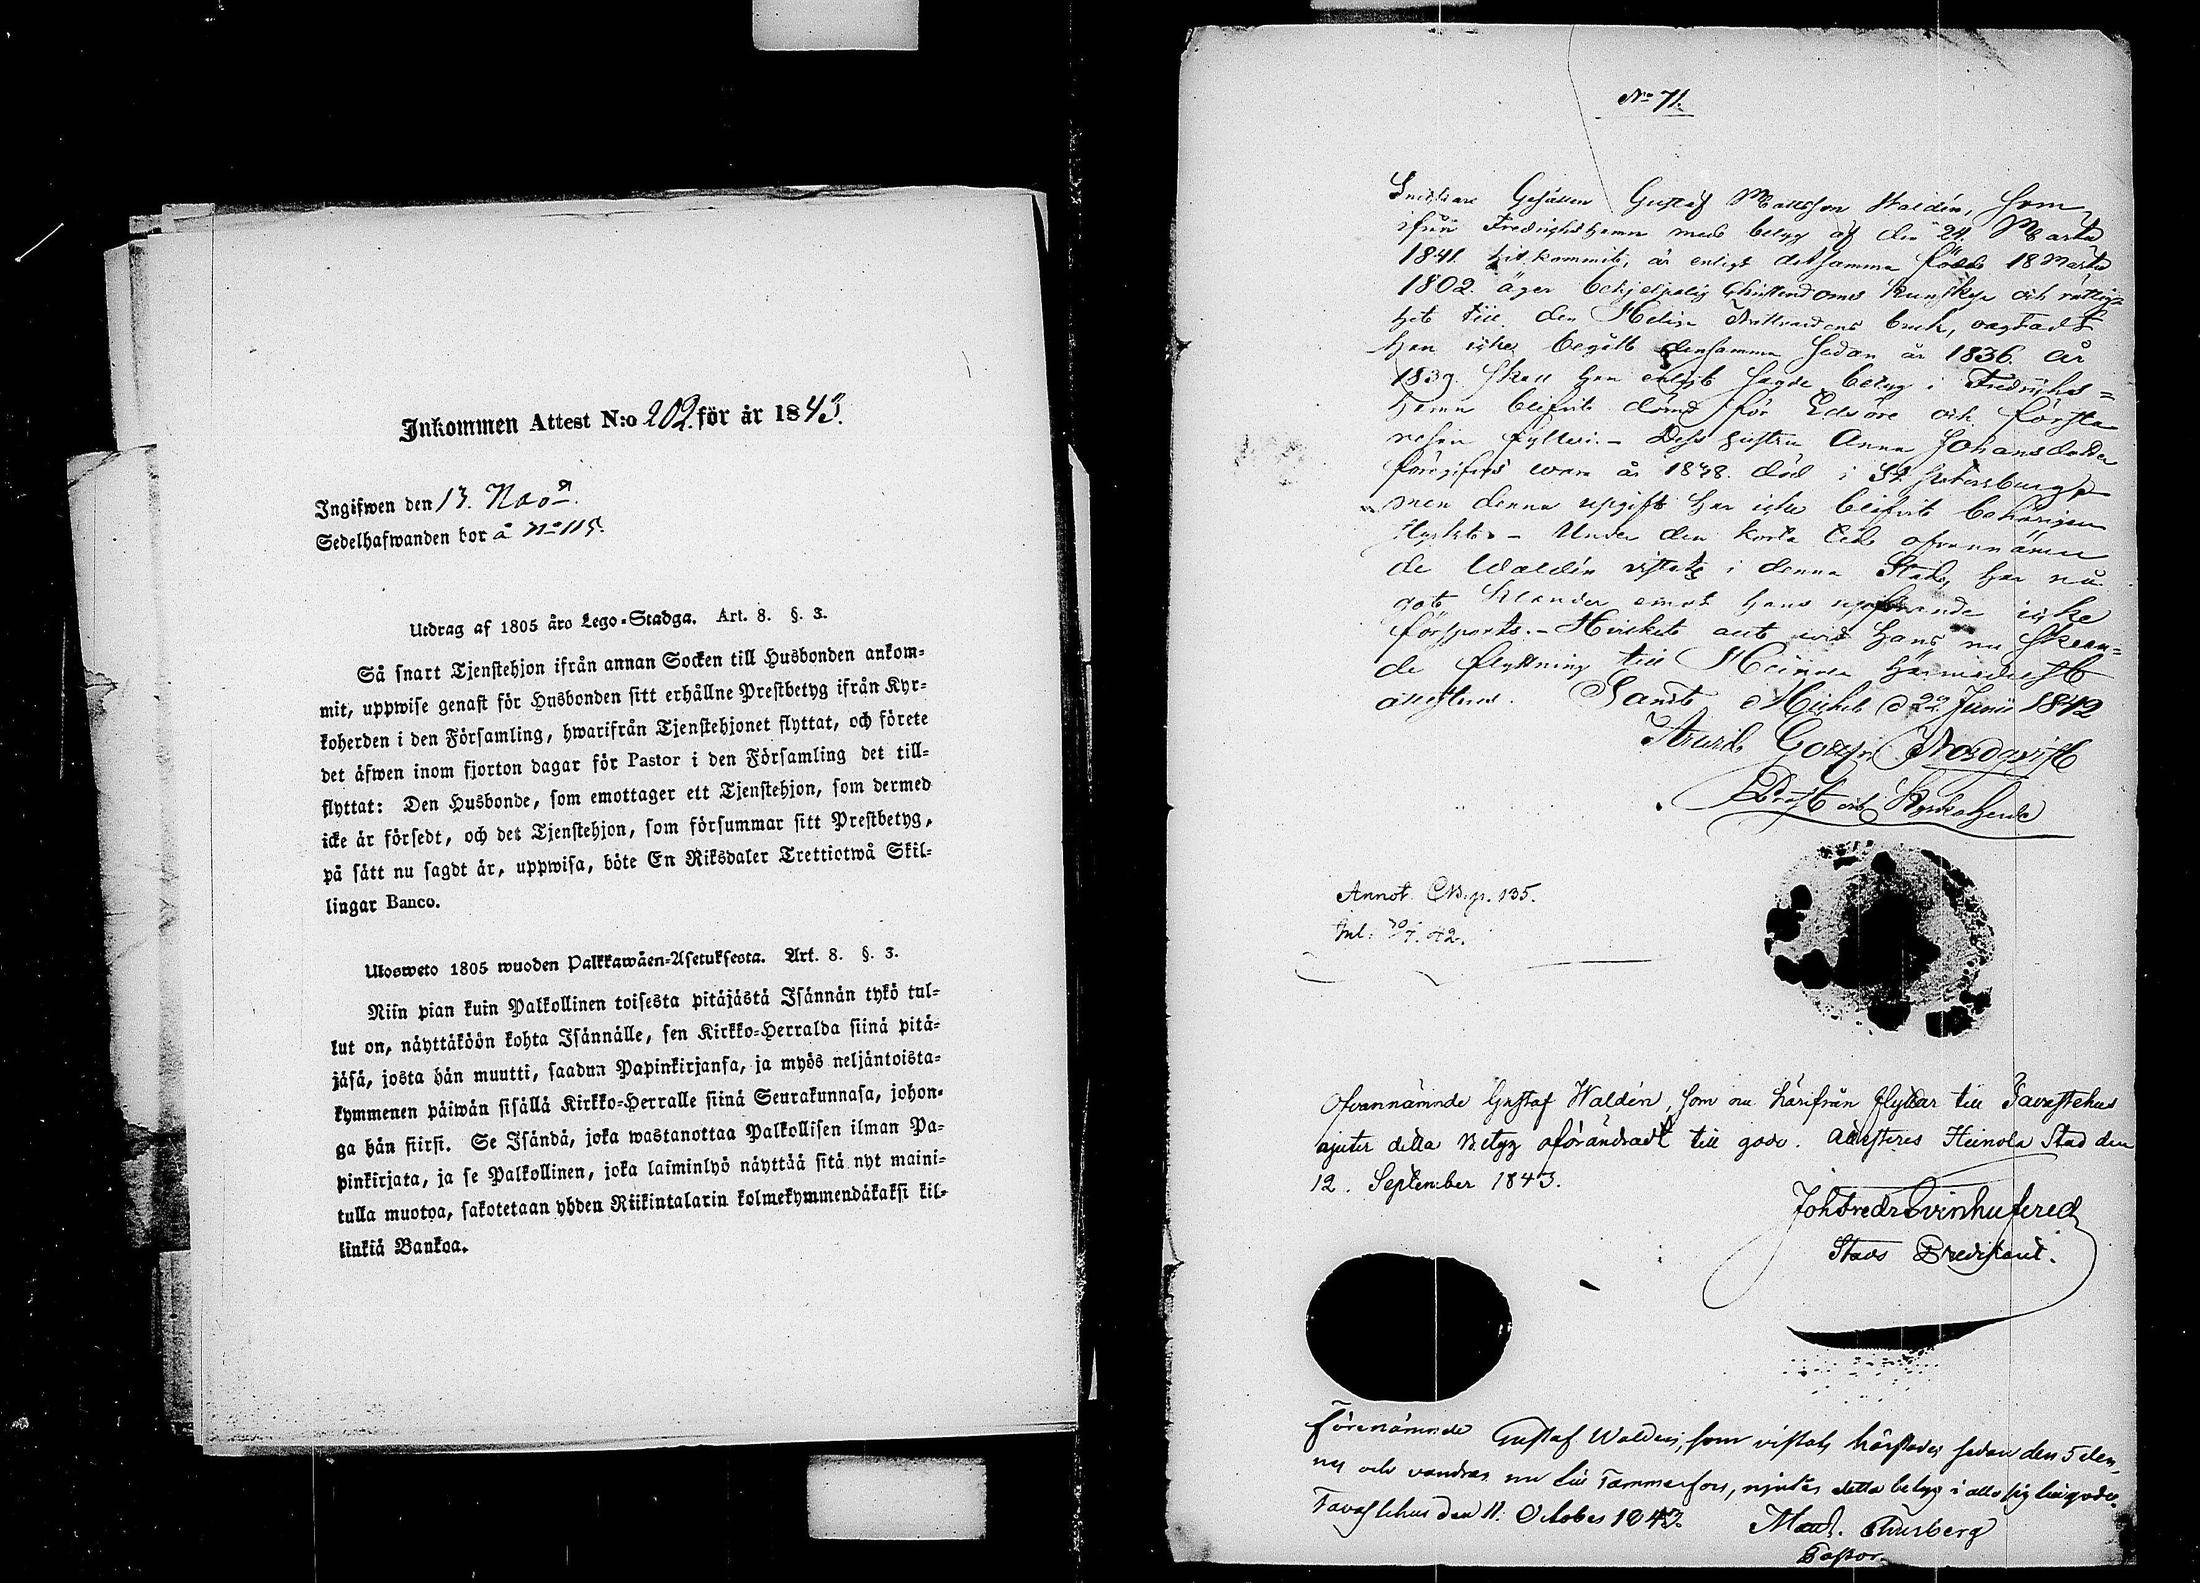 Inkommen Attest N:o 202. för år 1843.
Ingifwen den 13. Nov:r
Sedelhafwanden bor å No 115.
Utdrag af 1805 års Lego-Stadga. Art. 8. §. 3.
Så snart Tjenstehjon ifrån annan Socken till Husbonden ankom-
mit, uppwise genast för Husbonden sitt erhållne Prestbetyg ifrån Kyr-
koherden i den Församling, hwarifrån Tjenstehjonet flyttat, och förete
det äfwen inom fjorton dagar för Pastor i den Församling det till-
flyttat: Den Husbonde, som emottager ett Tjenstehjon, som dermed
icke är försedt, och det Tjenstehjon, som försummar sitt Prestbetyg,
på sätt nu sagdt är, uppwisa, böte En Riksdaler Trettiotwå Skil-
lingar Banco.
Ulosweto 1805 wuoden Palkkawäen-Asetuksesta. Art. 8. §. 3.
Niin pian kuin Palkollinen toisesta pitäjästä Isännän tykö tul-
lut on, näyttäköön kohta Isännälle, sen Kirkko-Herralda siinä pitä-
jäsä, josta hän muutti, saadun Papinkirjansa, ja myös neljäntoista-
kymmenen päiwän sisällä Kirkko-Herralle siinä Seurakunnasa, johon-
ga hän siirsi. Se Isändä, joka wastanottaa Palkollisen ilman Pa-
pinkirjata, ja se Palkollinen, joka laiminlyö näyttää sitä nyt maini-
tulla muotoa, sakotetaan yhden Riikintalarin kolmekymmendäkaksi kil-
linkiä Bankoa.
No 71.
Gesällen Gustaf Mattsson Waldén, som
ifrån Fredrichshamn med betyg af den 24 Martii
1841. hit kommit, är enligt detsamma född 18 Martii
1802. äger behjelplig Christendoms kunskap och rättig-
het till den Helige Nattvardens bruk, oagtadt
han icke begått densamma sedan år 1836. År
1839. skall han enligt sagde betyg i Fredrichs=
hamn blifvit dömd för Edsöre och första
resan fylleri. – Dess hustru Anna Johansdotter
föregifves vara år 1838. död i St. Petersburg
men denna upgift har icke blifvit behörigen
styrkt. – Under den korta tid ofvannämn
de Waldén vistats i denna Stad, har nå
got klander emot hans uppförande icke
försports. – Hvilket allt vid hans nu skeen=
de flyttning till Heinola härmedelst
attesteras. Sanct Michel d 22 Junii 1842
Nordqvist
Prost och Kyrkoherde
Annot. p. 135.
Ofvannämnde Gustaf Waldén, som nu härifrån flyttar till Tavastehus
njuter detta Betyg oförändradt till godo. Attesteres Heinola Stad den
12. September 1843.
Joh Fredr Svinhufvud
Stads Predikant.
Förenämnde Gustaf Walden, som vistats härstädes sedan den 5 den-
nes och vandrar nu till Tammerfors, njuter detta betyg i allo sig till godo.
Tavastehus den 11. October 1843. Thusberg
Pastor.